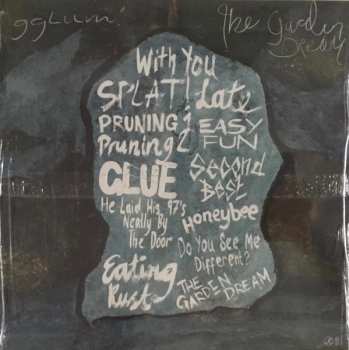 gglum
The Garden Dream
With You
SPLAT! Late
PRUNING 1 EASY FUN
Pruning 2
GLUE Second Best
He Laid His 97's Neatly By The Door
Honeybee
Do You See Me Different?
Eating Rust
THE GARDEN DREAM